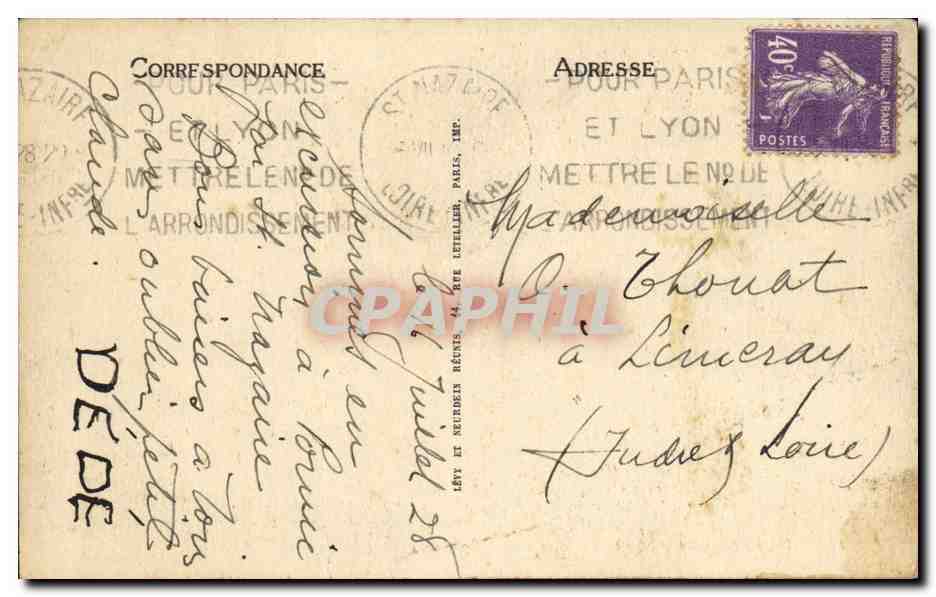 CORRESPONDANCE
ADRESSE
40c
REPUBLIQUE FRANÇAISE
POSTES
ST NAZAIRE
LOIRE-INFRE
POUR PARIS
ET LYON
METTRE LE No DE
L'ARRONDISSEMENT
POUR PARIS
ET LYON
METTRE LE No DE
L'ARRONDISSEMENT
AZAIRE
E-INFRE
LÉVY ET NEURDEIN RÉUNIS, 44, RUE LETELLIER, PARIS, IMP.
le 16 Juillet 28
sommes en
excursion à Pornic
par St. Nazaire
Bons baisers à tous
sans oublier petite
Claude.
DÉDÉ
Mademoiselle
O. Thouat
à Limeray
(Indre & Loire)
CPAPHIL